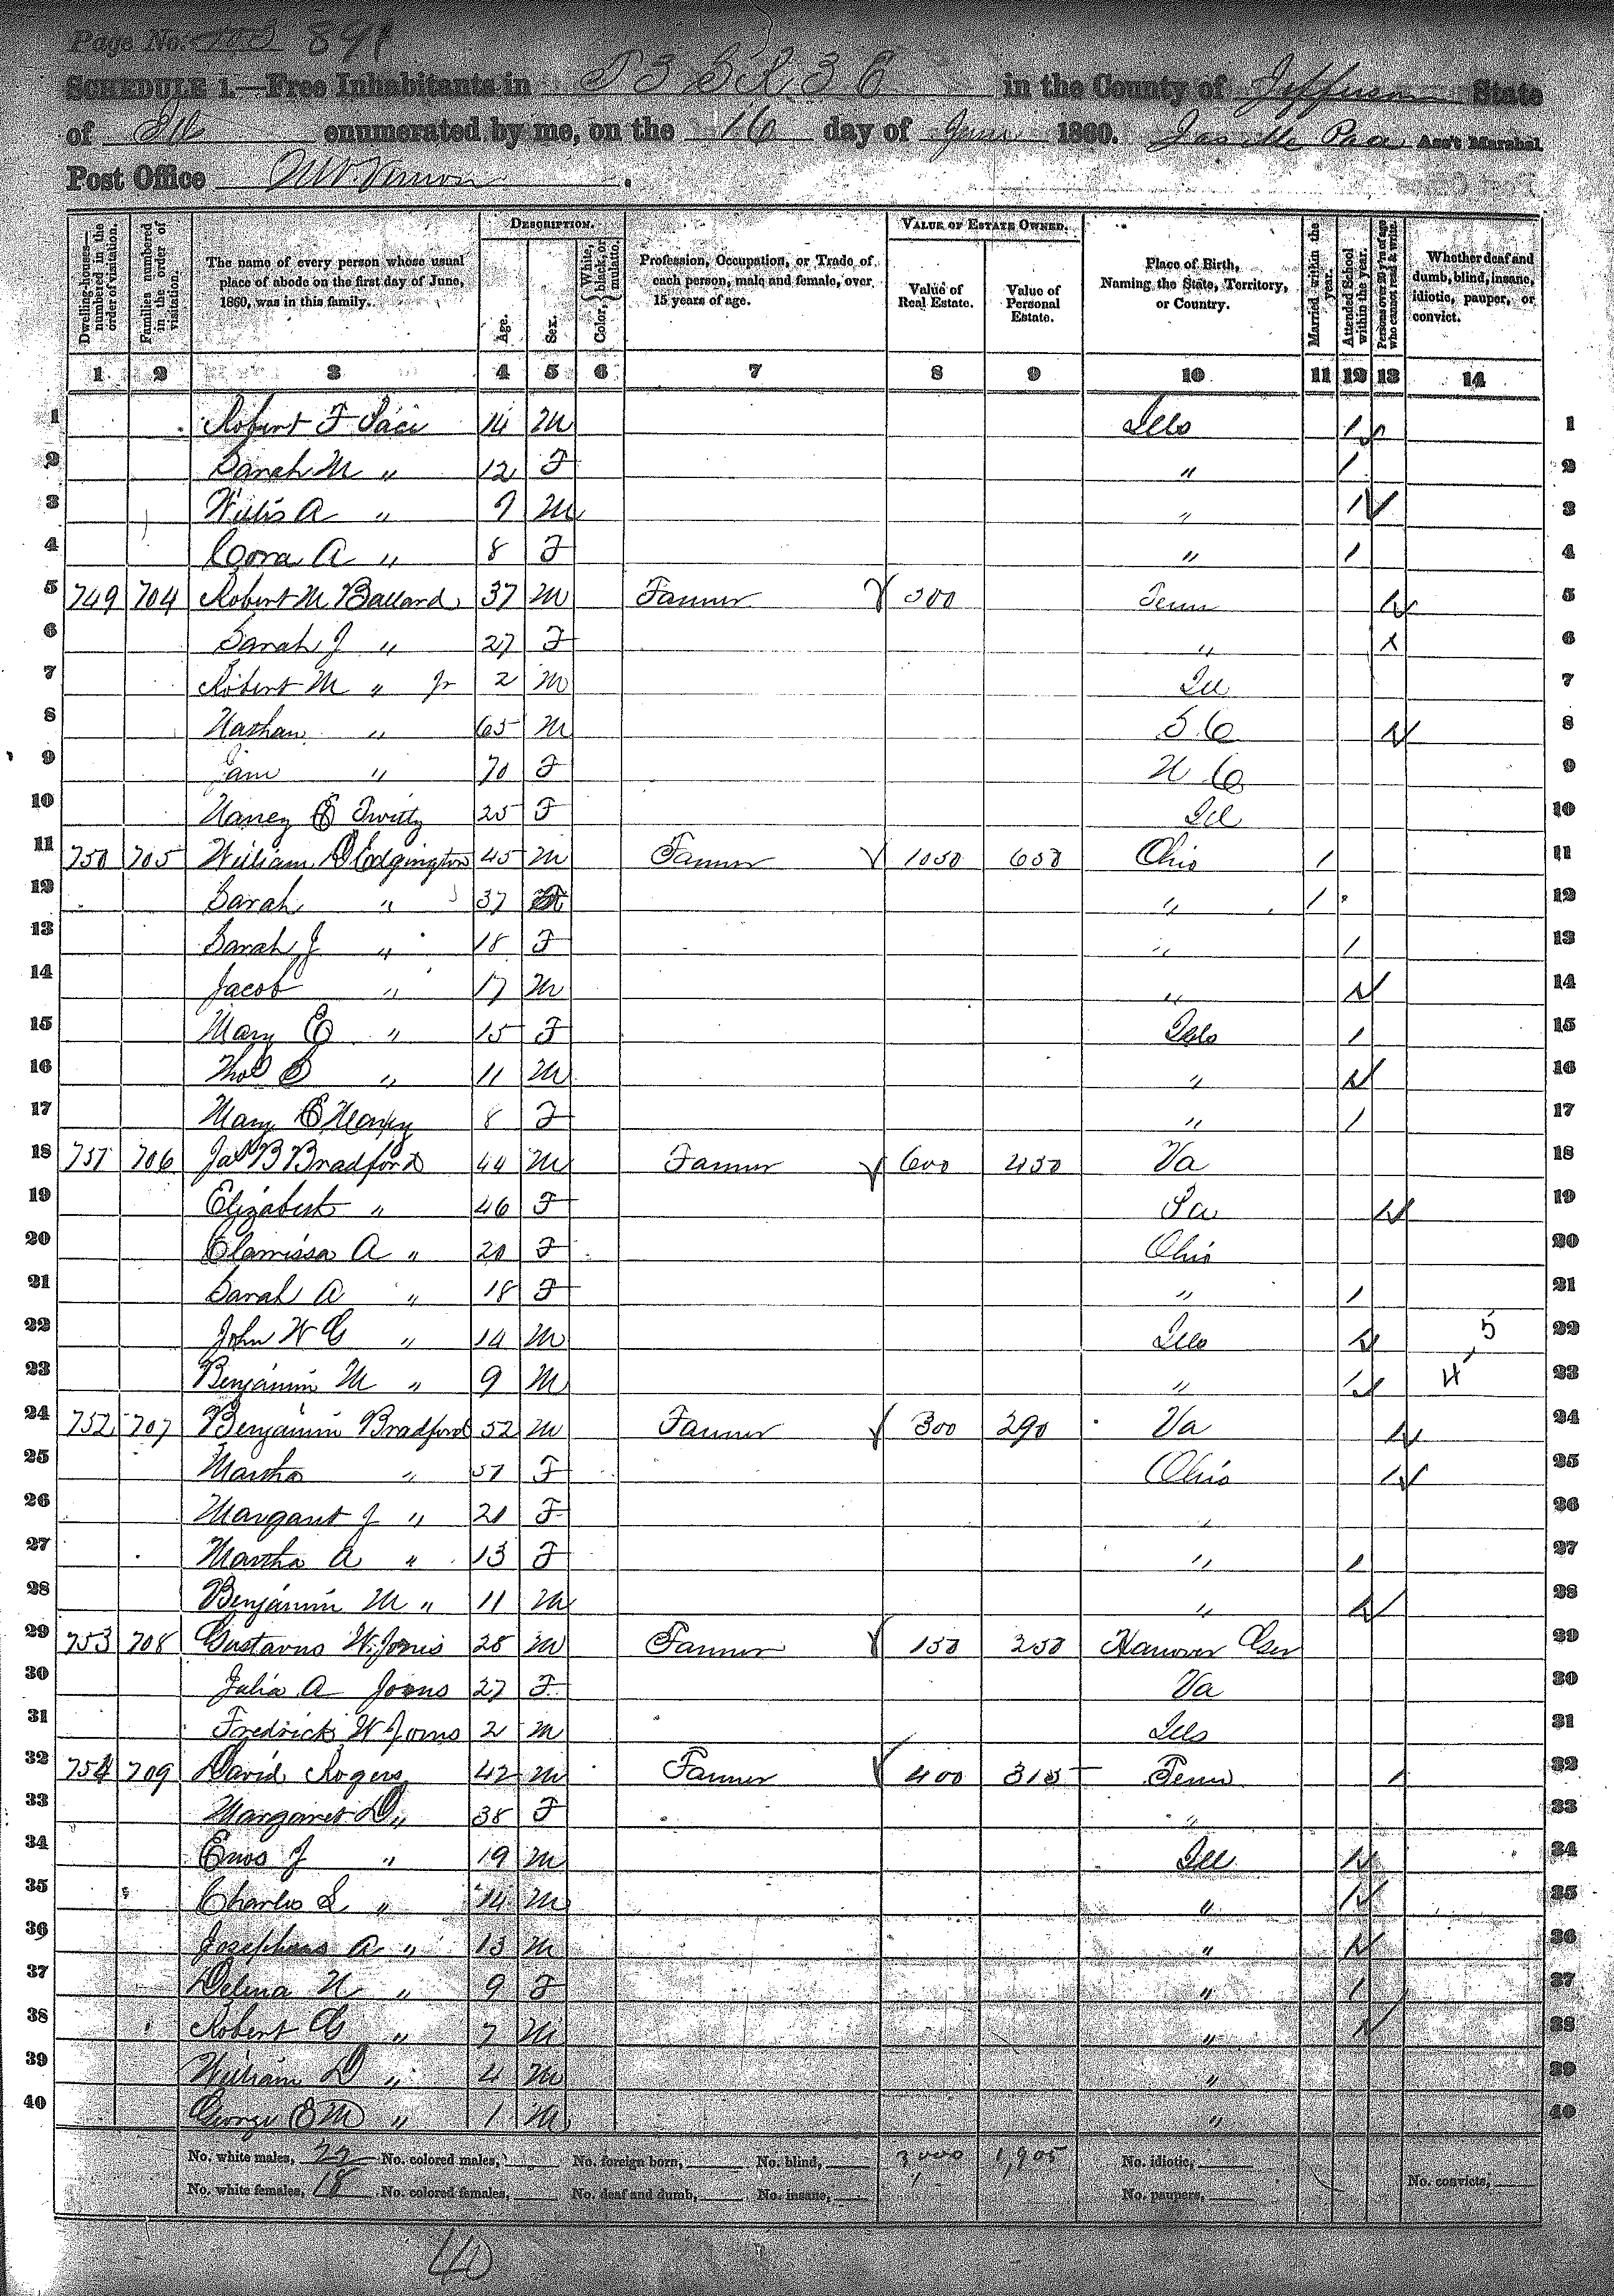 Page No. 103 891
SCHEDULE 1.—Free Inhabitants in T 3 S R 3 E in the County of Jefferson State
of Ill enumerated by me, on the 16 day of June 1860. Pace Ass't Marshal
Post Office Mt. Vernon.
Dwelling-houses—numbered in the order of visitation.
Families numbered in the order of visitation.
The name of every person whose usual place of abode on the first day of June, 1860, was in this family.
DESCRIPTION.
Age.
Sex.
Color, White, black, or mulatto.
Profession, Occupation, or Trade of each person, male and female, over 15 years of age.
VALUE OF ESTATE OWNED.
Value of Real Estate.
Value of Personal Estate.
Place of Birth, Naming the State, Territory, or Country.
Married within the year.
Attended School within the year.
Persons over 20 y'rs of age who cannot read & write.
Whether deaf and dumb, blind, insane, idiotic, pauper, or convict.
1 2 3 4 5 6 7 8 9 10 11 12 13 14
1 Robert F Pace 14 M Ills 1 1
2 Sarah M " 12 F " 1 2
3 Willis A " 9 M " 1 3
4 Cora A " 8 F " 1 4
5 749 704 Robert M Ballard 37 M Farmer 300 Tenn 1 5
6 Sarah J " 27 F " x 6
7 Robert M " Jr 2 M Ill 7
8 Nathan " 65 M S C 1 8
9 Jane " 70 F N C 9
10 Nancy E Twitty 25 F Ill 10
11 750 705 William D Edgington 45 M Farmer 1050 650 Ohio 1 11
12 Sarah " 37 F " 1 12
13 Sarah J " 18 F " 1 13
14 Jacob " 17 M " 1 14
15 Mary E " 15 F Ills 1 15
16 Thos S " 11 M " 1 16
17 Mary E 8 F " 1 17
18 751 706 Jas B Bradford 44 M Farmer 600 450 Va 18
19 Elizabeth " 46 F Pa 1 19
20 Clarrissa A " 20 F Ohio 20
21 Sarah A " 18 F " 1 21
22 John W C " 14 M Ills 1 5 22
23 Benjamin M " 9 M " 1 4 23
24 752 707 Benjamin Bradford 52 M Farmer 300 290 Va 1 24
25 Martha " 51 F Ohio 1 25
26 Margaret J " 21 F " 26
27 Martha A " 13 F " 1 27
28 Benjamin M " 11 M " 1 28
29 753 708 Gustavus W. Jorns 28 M Farmer 150 250 Hanover Ger 29
30 Julia A Jorns 27 F Va 30
31 Fredrick W Jorns 2 M Ills 31
32 754 709 David Rogers 42 M Farmer 400 315 Tenn 1 32
33 Margaret D " 38 F " 33
34 Enos J " 19 M Ill 1 34
35 Charles L " 14 M " 1 35
36 Josephus A " 13 M " 1 36
37 Delina N " 9 F " 1 37
38 Robert C " 7 M " 1 38
39 William D " 4 M " 39
40 George E M " 1 M " 40
No. white males, 22 No. colored males, No. foreign born, No. blind, 3,000 1,905 No. idiotic, No. convicts,
No. white females, 18 No. colored females, No. deaf and dumb, No. insane, No. paupers,
40